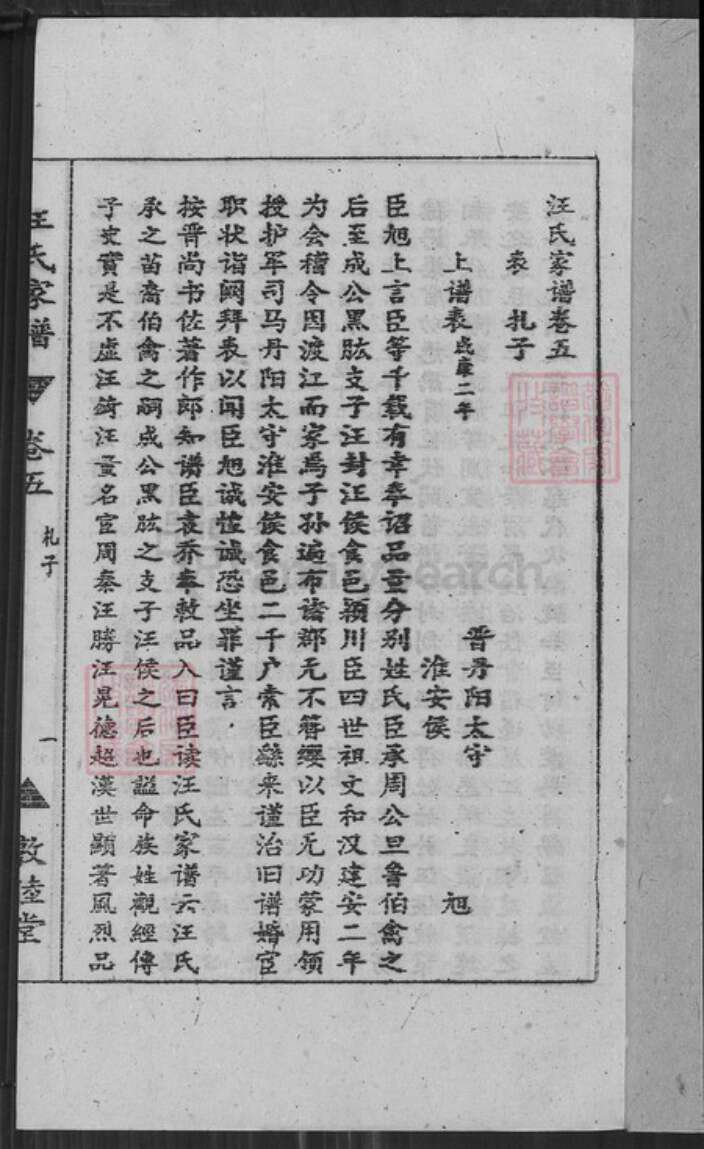 汪氏家谱卷五
表 札子
上谱表 咸康二年
晋丹阳太守
淮安侯 旭
臣旭上言臣等千载有幸奉诏品量分别姓氏臣承周公旦鲁伯禽之
后至成公黑肱支子汪封汪侯食邑颍川臣四世祖文和汉建安二年
为会稽令因渡江而家焉子孙遍布诸郡无不簪缨以臣无功蒙用领
授护军司马丹阳太守淮安侯食邑二千户索臣繇来谨治旧谱婚宦
职状诣阙拜表以闻臣旭诚惶诚恐坐罪谨言
按晋尚书佐著作郎知谱臣袁乔奉敕品入曰臣读汪氏家谱云汪氏
承之苗裔伯禽之嗣成公黑肱之支子汪侯之后也谥命族姓觀經傳
子史實是不虚汪錡汪量名宦周秦汪勝汪晃德超漢世顯著風烈品
汪氏家谱
卷五
札子
一
敦睦堂